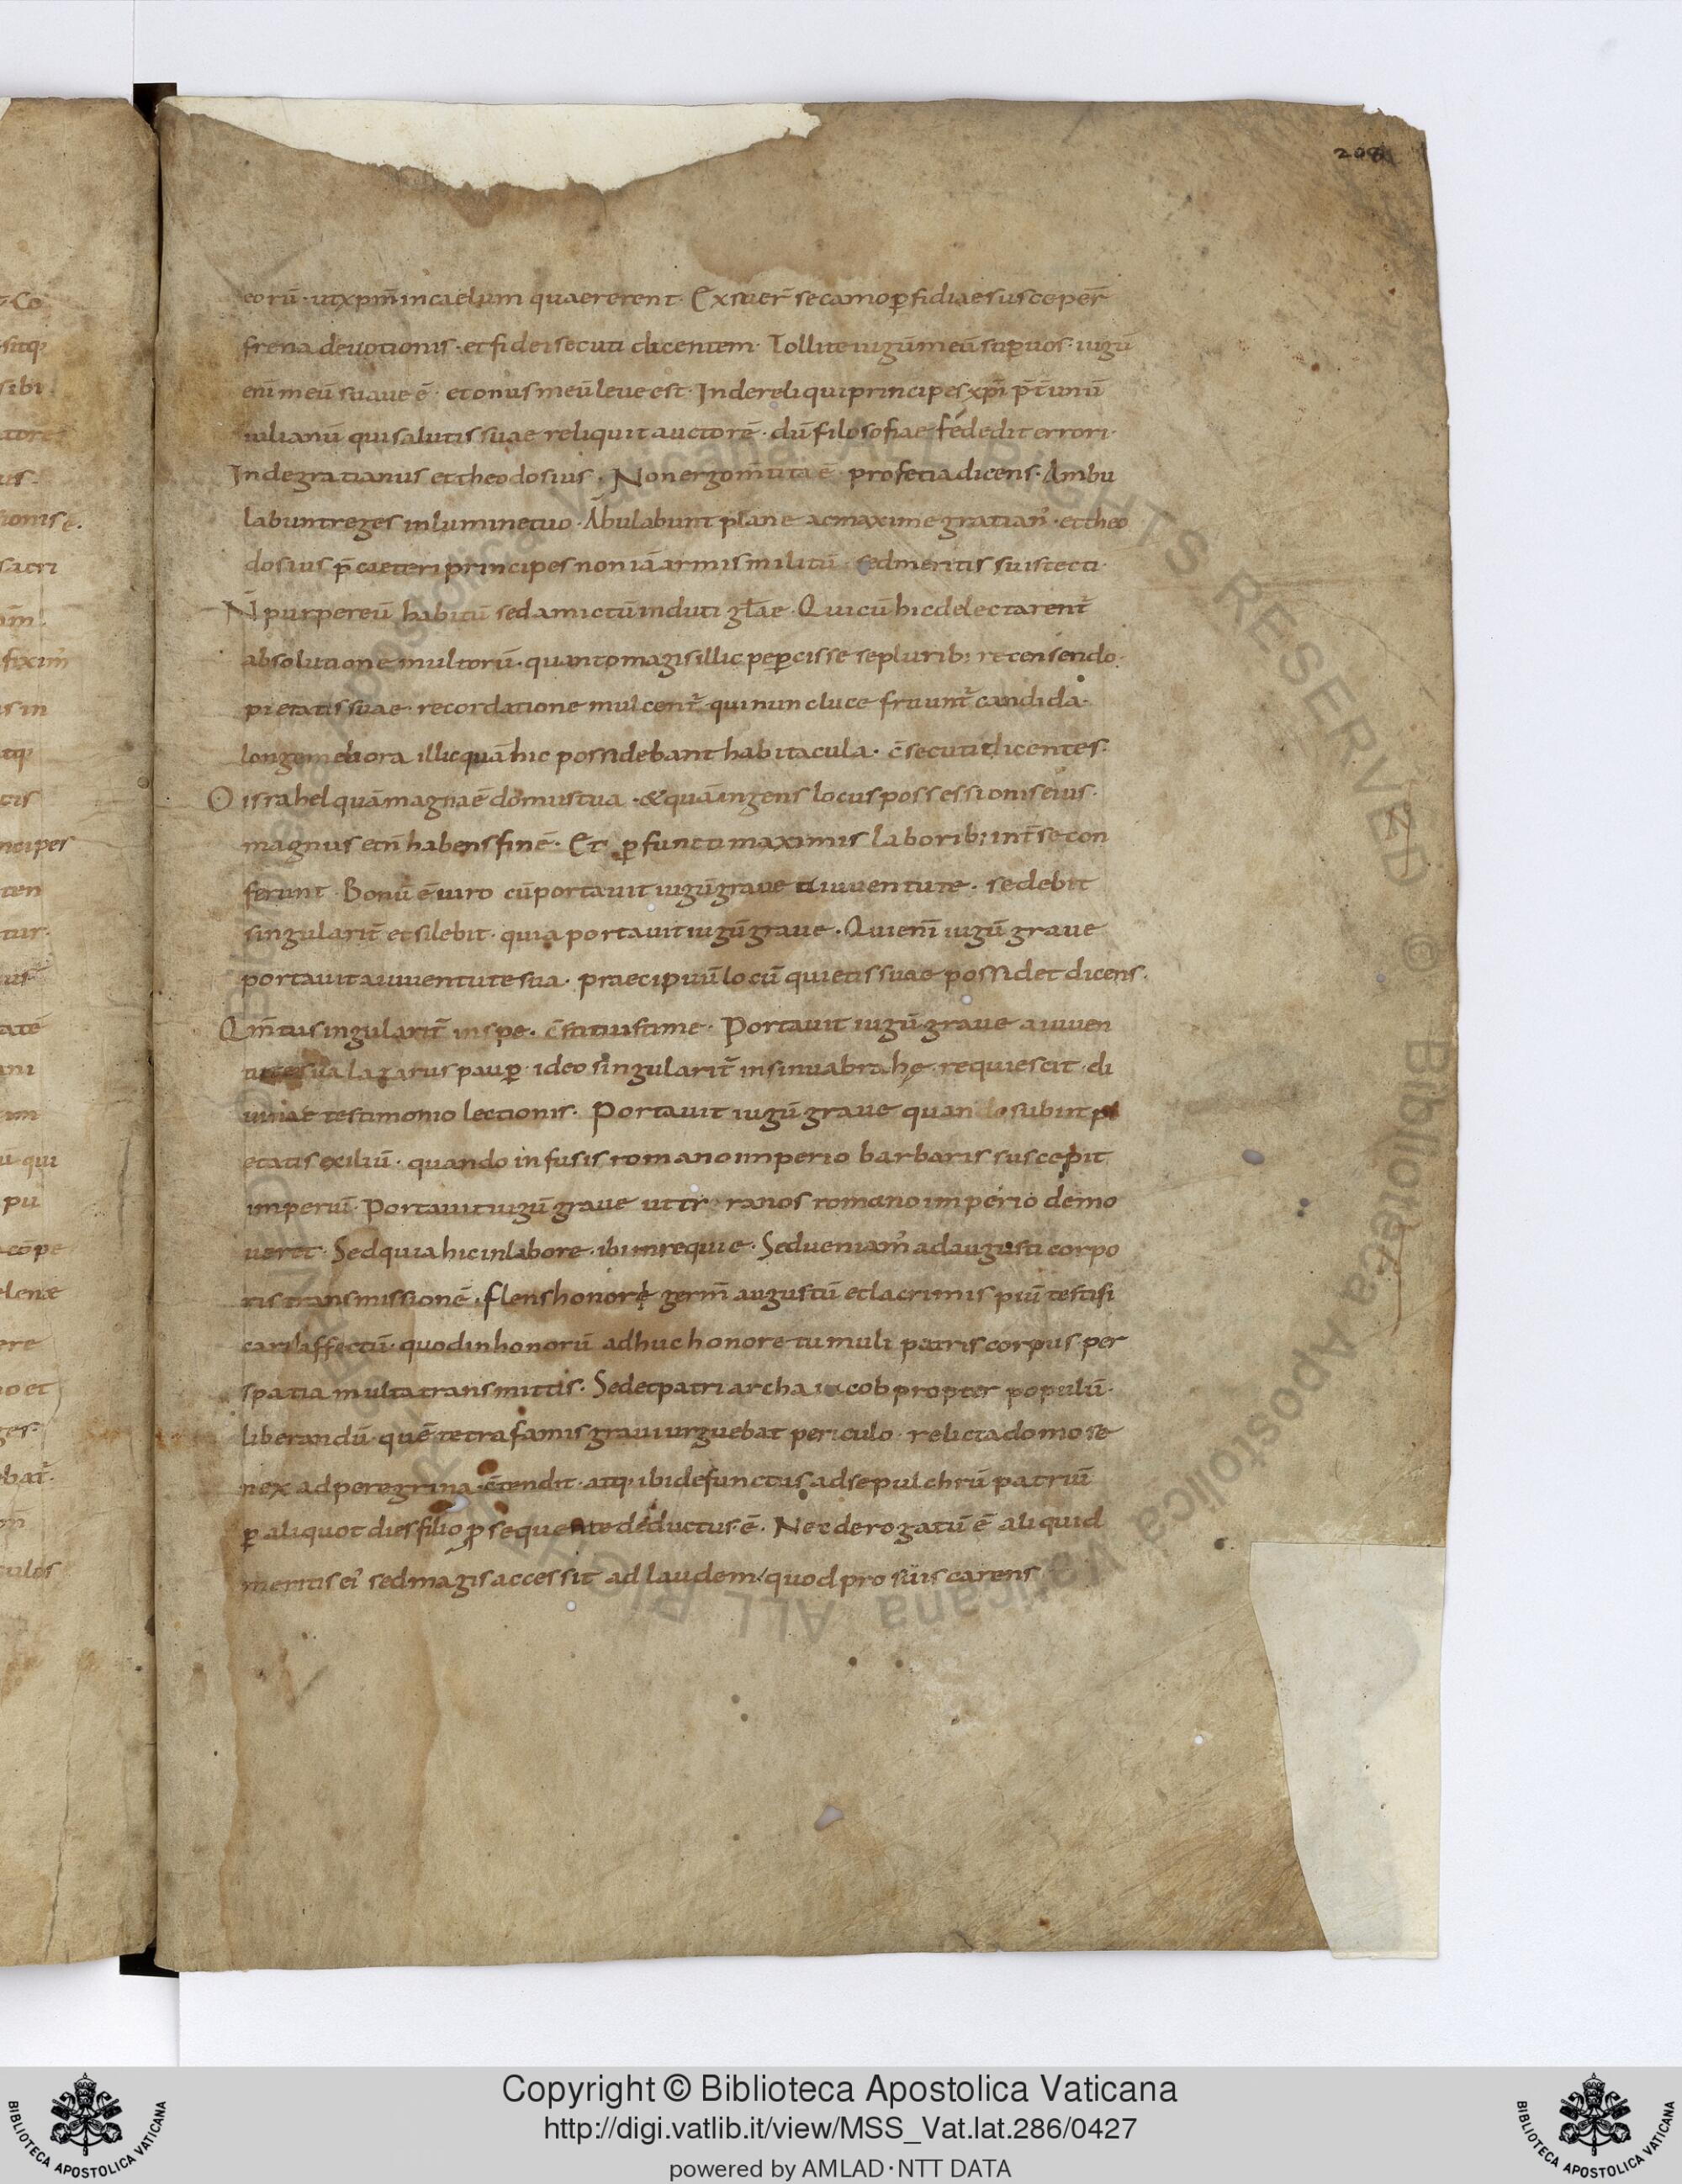 208
eorū · ut xpm̄ in caelum quaererent · Exsuer̄ se camo ꝑfidiae susceper̄
frena devotionis · et fidei secuti dicentem · Tollite iugū meū sup vos · iugū
eni meū suave ē · et onus meū leve est · Inde reliqui principes xpi p̄t unū
iulianū qui salutis suae reliquit auctorē · dū filosofiae se dedit errori ·
Inde gratianus et theodosius · Non ergo m̄tita ē profetia dicens · Ambu
labunt reges in lumine tuo · Ābulabunt plane ac maxime gratian' · et theo
dosius p̄ caeteri principes non iā armis militū sed meritis suis tecti ·
N̄ purpereū habitū sed amictū induti glae · Qui cū hic delectarent̄
absolutione multorū · quanto magis illic peꝑcisse se plurib; recensendo ·
pietatis suae · recordatione mulcent̄ · qui nunc luce fruunt̄ candida ·
longe meliora illic quā hic possidebant habitacula · c̄secuti dicentes ·
O israhel quā magna ē domus tua · & quā ingens locus possessionis eius ·
magnus et n̄ habens finē · Et ꝑfuncti maximis laborib; int̄ se con
ferunt · Bonū ē viro cū portavit iugū grave a iuventute · sedebit
singularit̄ et silebit · quia portavit iugū grave · Qui eni iugū grave
portavit a iuventute sua · praecipuū locū quietis suae possidet dicens ·
Qm̄ tu singularit̄ in spe · c̄stituisti me · Portavit iugū grave a iuven
tute sua lazarus pauꝑ · ideo singularit̄ in sinu abrahę requiescit · di
vinae testimonio lectionis · Portavit iugū grave quando subiit pi
etatis exiliū · quando infusis romano imperio barbaris suscepit
imperiū · Portavit iugū grave ut tyrannos romano imperio demo
veret · Sed quia hic in labore · ibi in requie · Sed veniam' ad augusti corpo
ris transmissionē · flens honorę germ̄ augustū et lacrimis piū testifi
caris affectū · quod inhonorū adhuc honore tumuli patris corpus per
spatia multa transmittis · Sed et patriarcha iacob propter populū ·
liberandū · quē tetra famis gravi urguebat periculo · relicta domo se
nex ad peregrina c̄tendit · atq; ibi defunctus ad sepulchrū patriū
ꝑ aliquot dies filio ꝓsequente deductus ē · Nec derogatū ē aliquid
meritis ei' sed magis accessit ad laudem quod pro suis carens
Copyright © Biblioteca Apostolica Vaticana
http://digi.vatlib.it/view/MSS_Vat.lat.286/0427
powered by AMLAD · NTT DATA
BIBLIOTECA APOSTOLICA VATICANA
BIBLIOTECA APOSTOLICA VATICANA